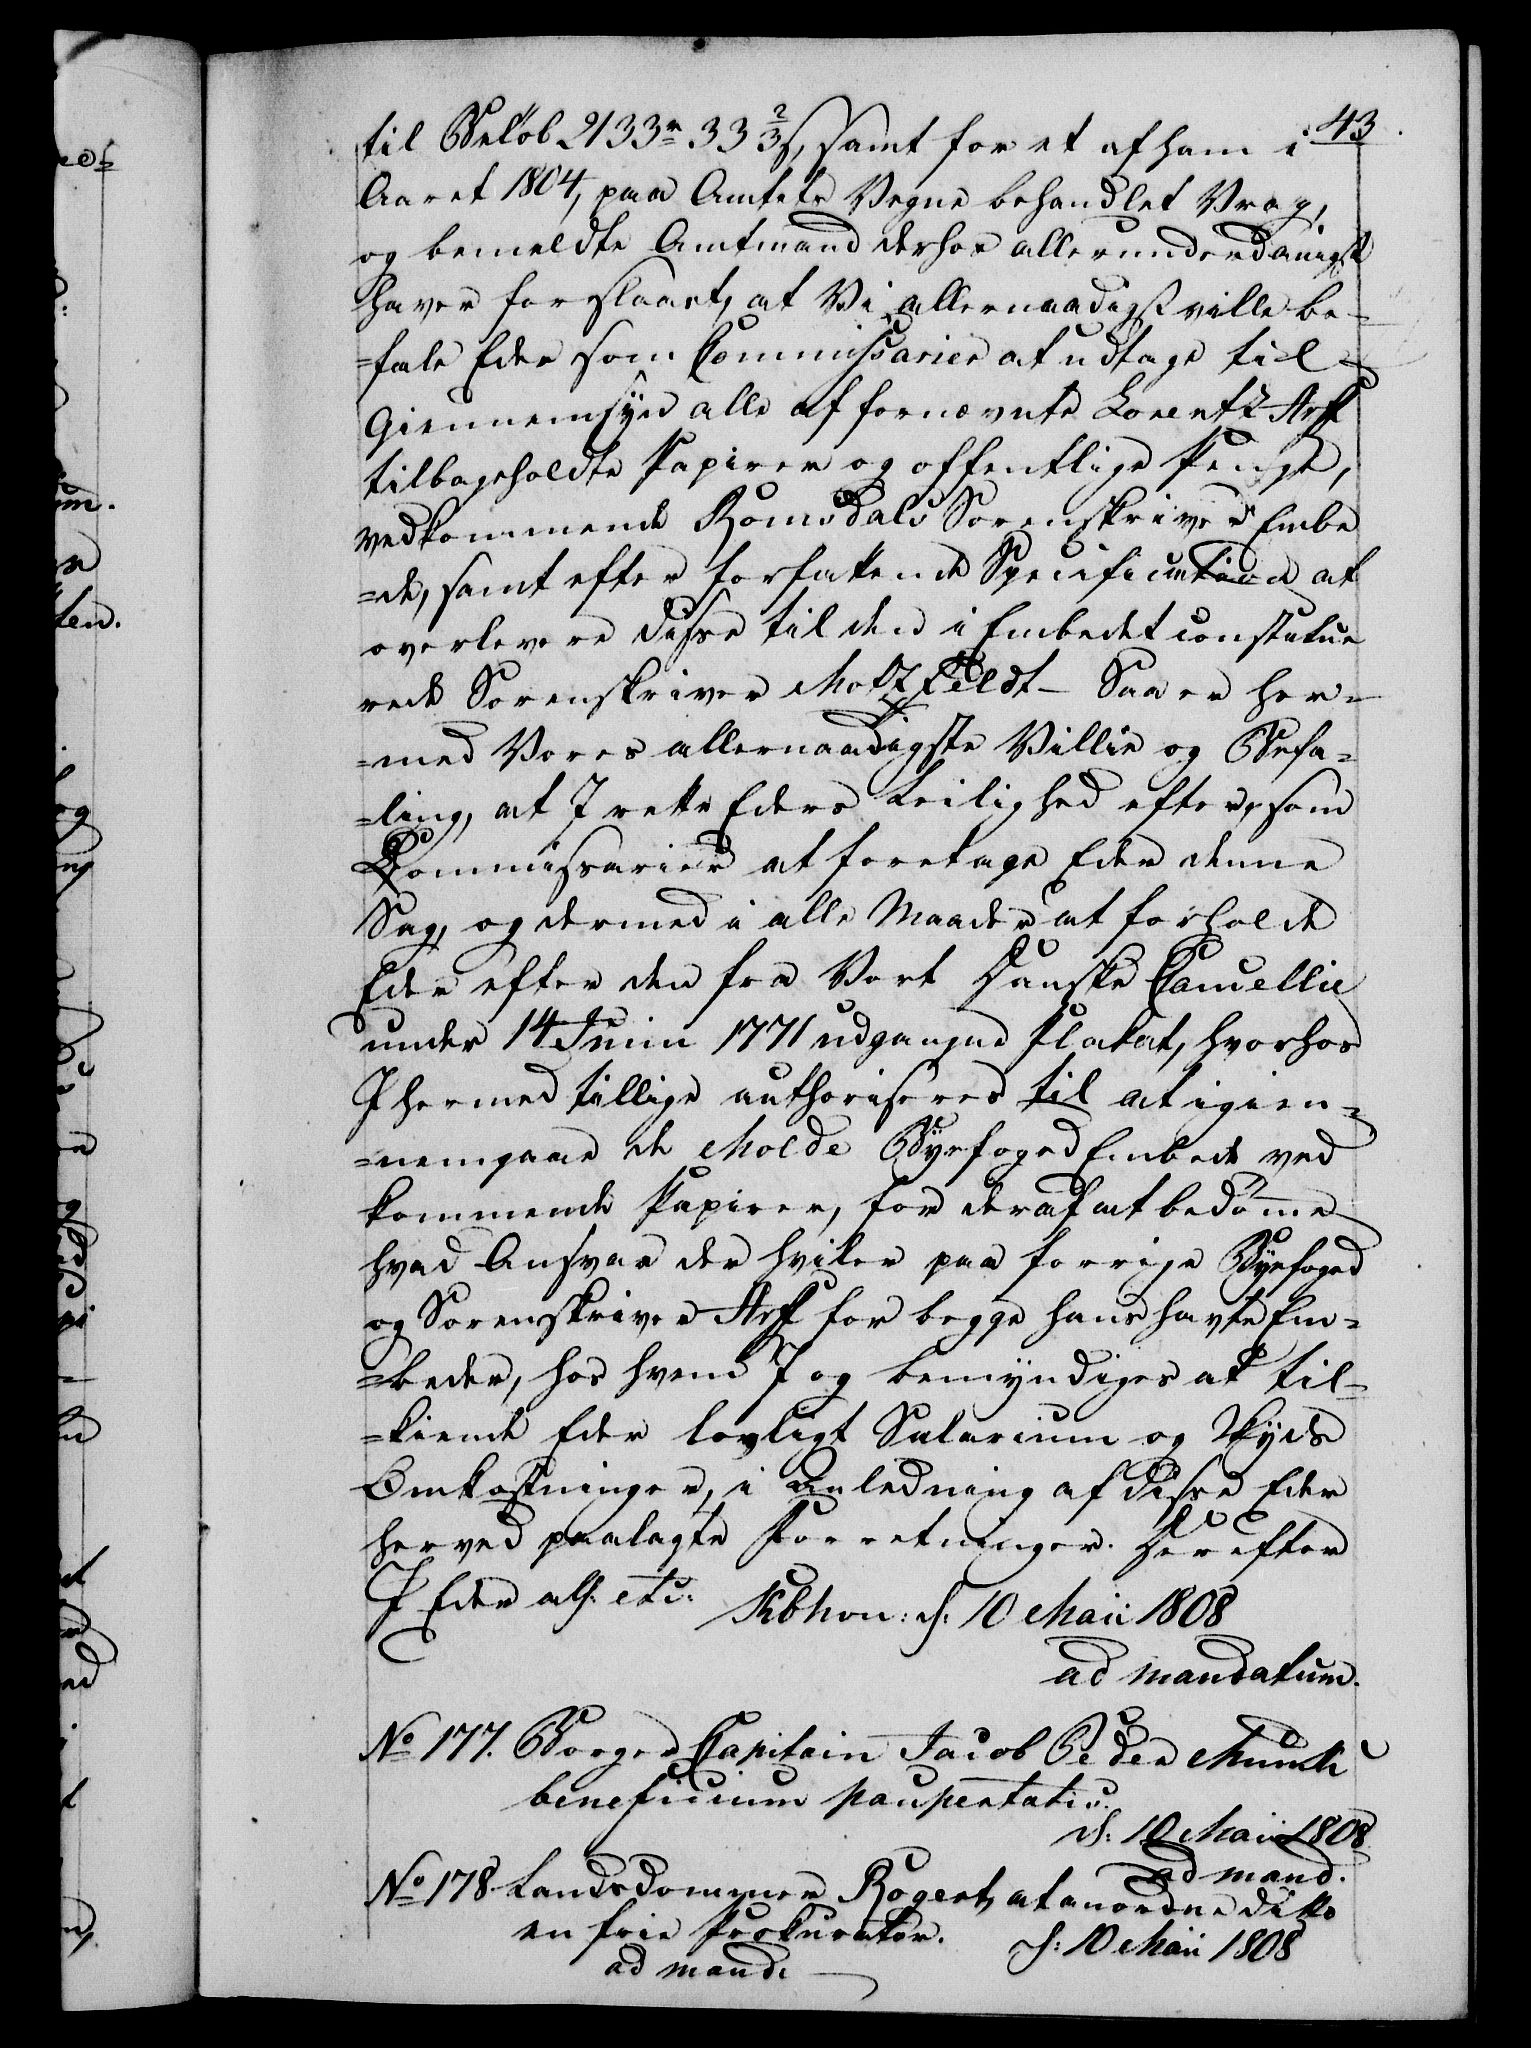 43.
til Beløb 2133 r 33 2/3 s, samt for et af ham i
Aaret 1804, paa Amtets Vegne behandlet Vrag,
og bemeldte Amtmand derhos allerunderdanigst
haver forslaaet, at Vi allernaadigst ville be-
=fale Eder som Commissarier at udtage til
Giennemsyn alle af fornævnte Lorentz Arff
tilbageholdte Papirer og offentlige Penge,
vedkommende Romsdals Sorenskriver Embe
=de, samt efter forfattende Specification at
overlevere disse til den i Embedet constitue
rede Sorenskriver Motzfeldt – Saa er her-
=med Vores allernaadigste Villie og Befa-
=ling, at I rette Eders Leilighed efter, som
Commissarier at foretage Eder denne
Sag, og dermed i alle Maader at forholde
Eder efter den fra Vort Danske Cancellie
under 14 Junii 1771 udgangne Plakat, hvorhos
I hermed tillige authoriseres til at igien-
=nemgaae de Molde Byefoged Embede ved
kommende Papirer, for deraf at bedømme
hvad Ansvar der hviler paa forrige Byefoged
og Sorenskriver Arff for begge hans havte Em-
=beder, hos hvem I og bemyndiges at til-
=kiende Eder lovligt Salarium og Skyds
Omkostninger, i Anledning af disse Eder
herved paalagte Forretninger. Herefter
I Eder all. etc: Kbhvn: d: 10 Maii 1808
ad mandatum.
No 177. Borger Capitain Jacob Peder Munch
beneficium paupertatis.
d: 10 Maii 1808
ad mand.
No 178. Landsdommer Rogert, at anordne ditto
en frie Prokurator. d: 10 Maii 1808
ad mand: